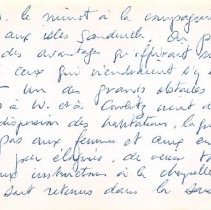 . le minot à la compagnie
aux isles Sandwich. On p
des avantages qu'offrirait
ceux qui viendraient s'y
Un des grands obstacles
à W. et à Cowlitz vient d
dispersion des habitations, la gr
pas aux femmes et aux en
par éloignés, de venir to
aux instructions à la chapelle
sont retenus dans la